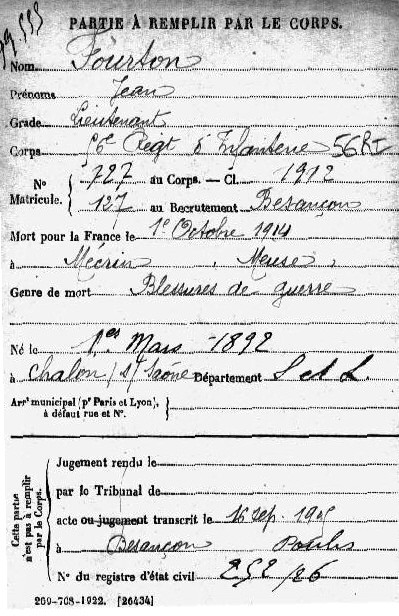 PARTIE À REMPLIR PAR LE CORPS.
Nom Fourton
Prénoms Jean
Grade Lieutenant
Corps 56e Régt d'Infanterie 56 RI
N° Matricule. { 727 au Corps. — Cl. 1912
127 au Recrutement Besançon
Mort pour la France le 1er Octobre 1914
à Mécrin, Meuse,
Genre de mort Blessures de guerre
Né le 1er Mars 1892
à Chalon s/ Saône Département S et L.
Arrt municipal (pr Paris et Lyon), à défaut rue et N°. {
Cette partie n'est pas à remplir par le Corps. {
Jugement rendu le
par le Tribunal de
acte ou jugement transcrit le 16 sep.
à Besançon Doubs
N° du registre d'état civil 252/26
269-708-1922. [26434]